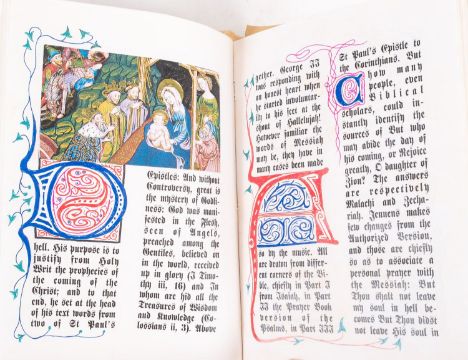 Epistles: And without
Controversy, great is
the mystery of Godli-
ness: God was mani-
fested in the Flesh,
seen of Angels,
preached among the
Gentiles, believed on
in the world, received
up in glory (I Timo-
thy iii, 16) and In
D
whom are hid all the
hell. His purpose is to
Treasures of Wisdom
justify from Holy
and Knowledge (Co-
Writ the prophecies of
lossians ii, 3). Above
the coming of the
Christ; and to that
end, he set at the head
of his text words from
two of St Paul's
gether. George II
was responding with
an honest heart when
he started involuntar-
ily to his feet at the
shout of Hallelujah!
However familiar the
words of Messiah may
be, they have in
many cases been made
A
so by the music. All
are drawn from differ-
ent corners of the Bi-
ble, chiefly in Part I
from Isaiah, in Part
II the Prayer Book
version of the
Psalms, in Part III
St Paul's Epistle to
the Corinthians. But
C
how many
people, even
Biblical
scholars, could in-
stantly identify the
sources of But who
may abide the day of
his coming, or Rejoice
greatly, O daughter of
Zion? The answers
are respectively
Malachi and Zecha-
riah. Jennens makes
few changes from the
Authorized Version,
and those are chiefly
so as to associate a
personal prayer with
the Messiah: But
Thou shalt not leave
my soul in hell be-
comes But Thou didst
not leave His soul in